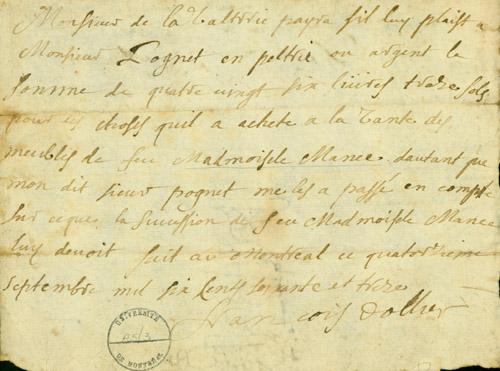 Monsieur de la Valtrie payra sil luy plaist a
Monsieur Pognet en peltrie ou argent la
somme de quatre vingt six livres treze sols
pour les choses quil a achete a la vante des
meubles de feu Madmoisele Mance dautant que
mon dit sieur pognet me les a passé en compte
sur ce que la sucussion de feu Madmoisele Mance
luy devoit fait au Montreal ce quatorzieme
septembre mil six cents soixante et treze
francois dollier
UNIVERSITÉ
DE MONTRÉAL